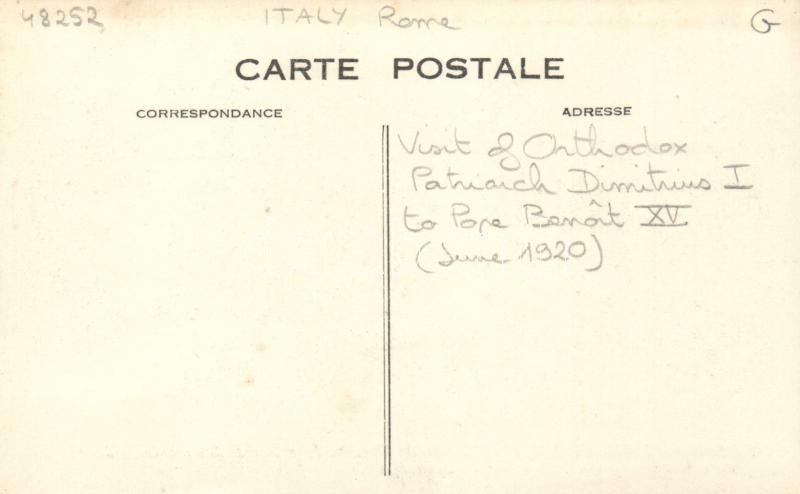 48252 ITALY Rome G
CARTE POSTALE
CORRESPONDANCE ADRESSE
Visit of Orthodox
Patriarch Dimitrius I
to Pope Benoît XV
(June 1920)